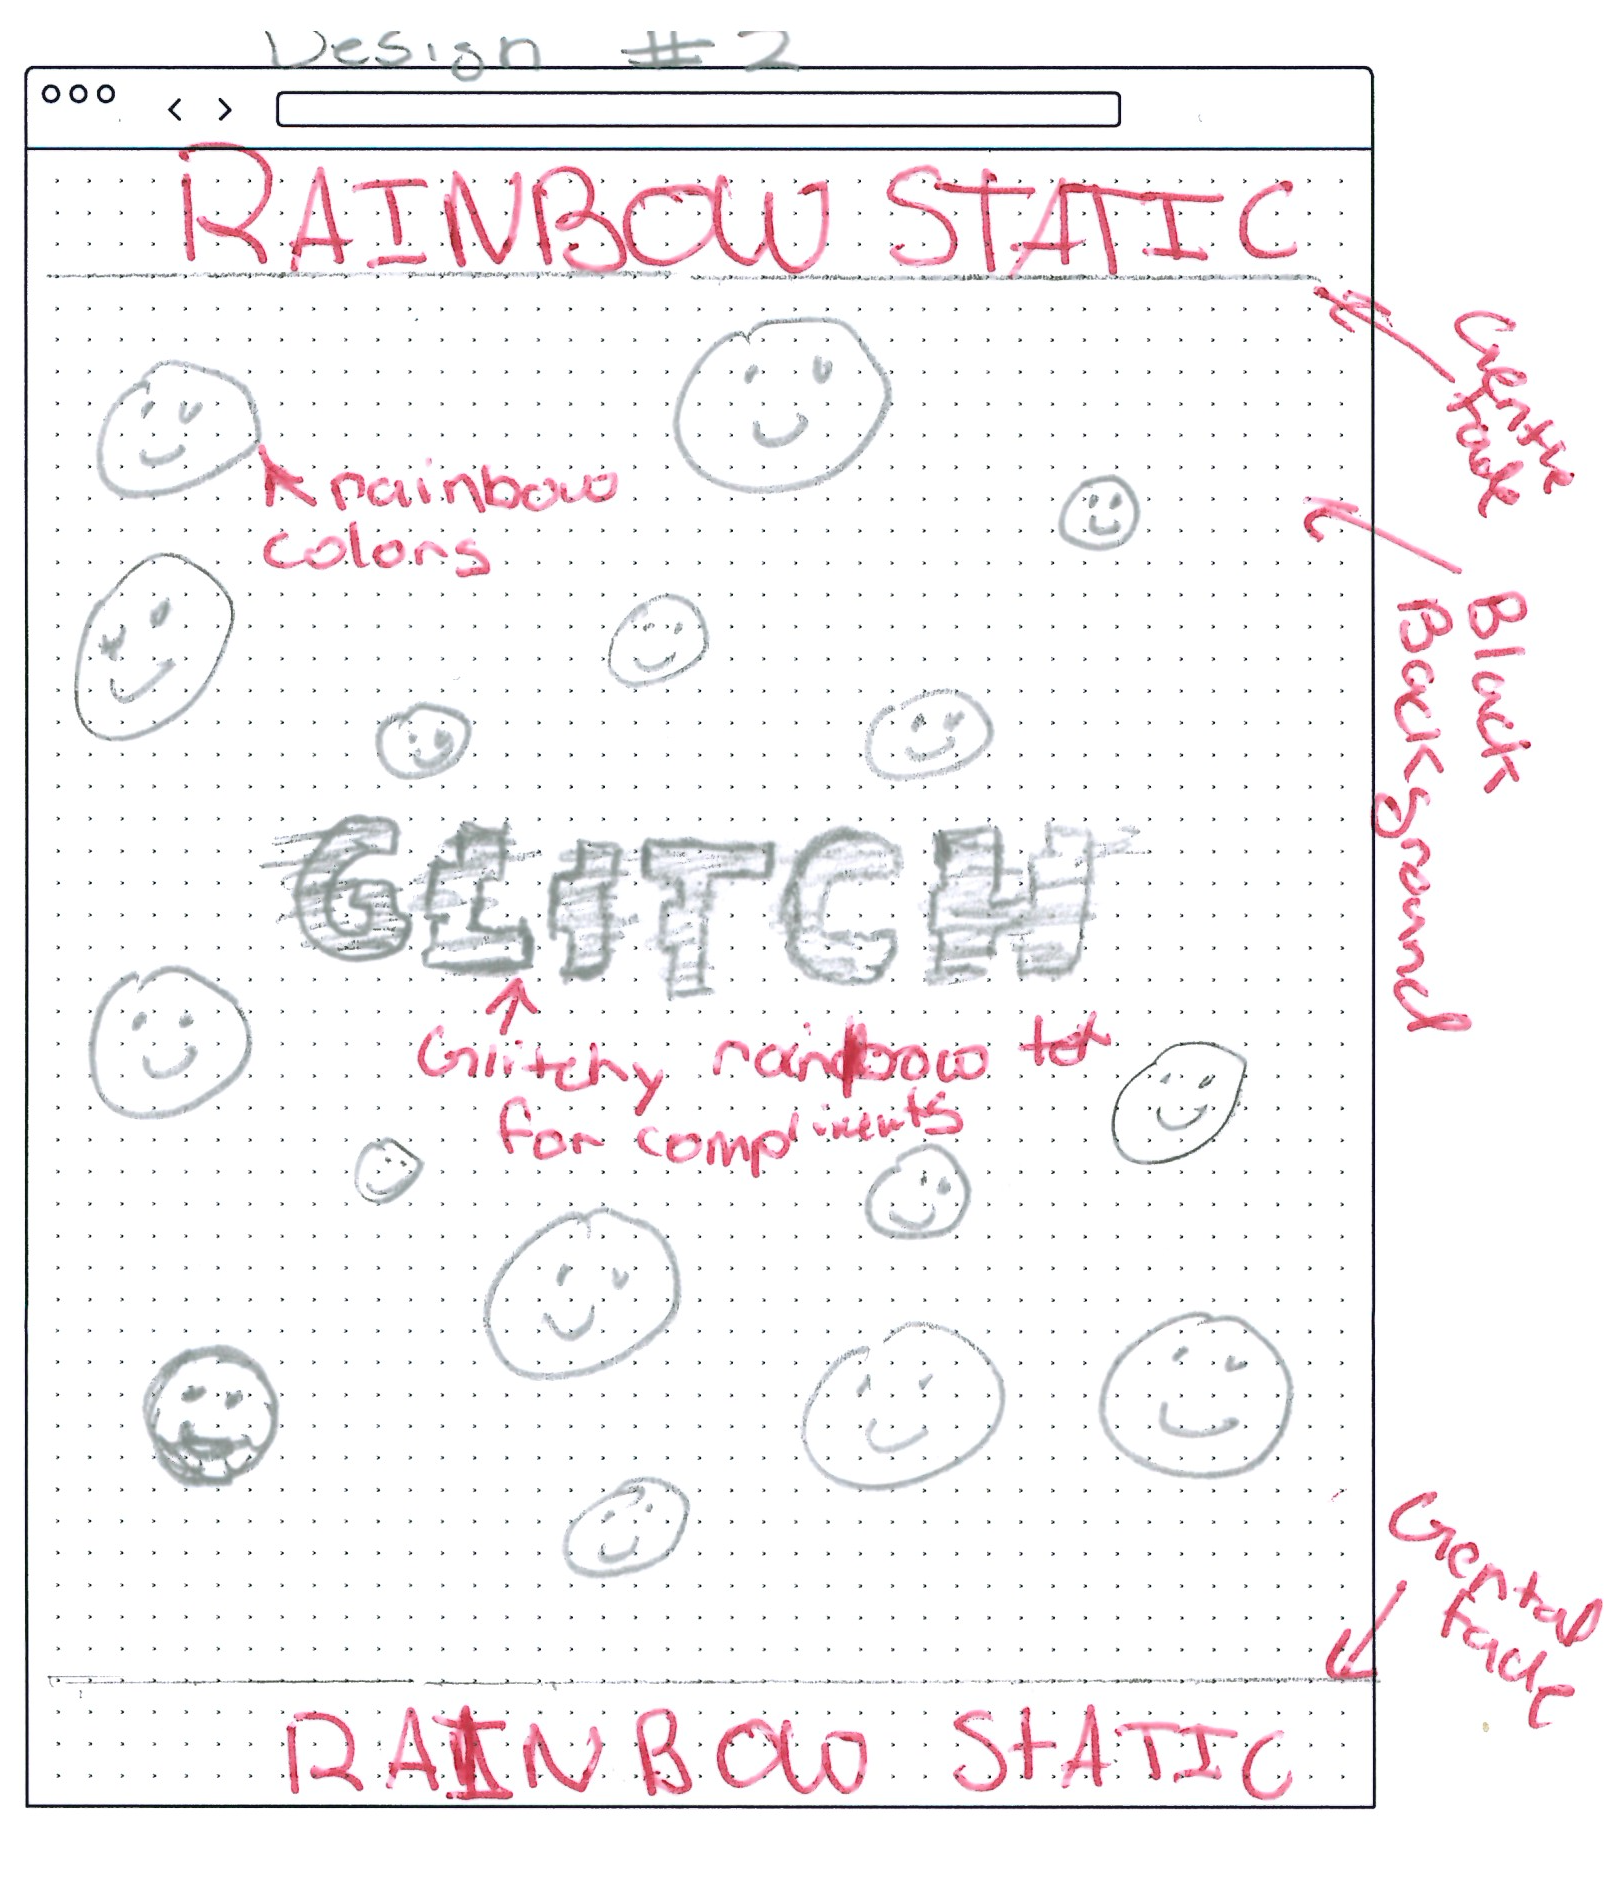 Design #2
RAINBOW STATIC
rainbow
colors
Black
Background
GLITCH
Glitchy rainbow txt
for compliments
fade
RAINBOW STATIC